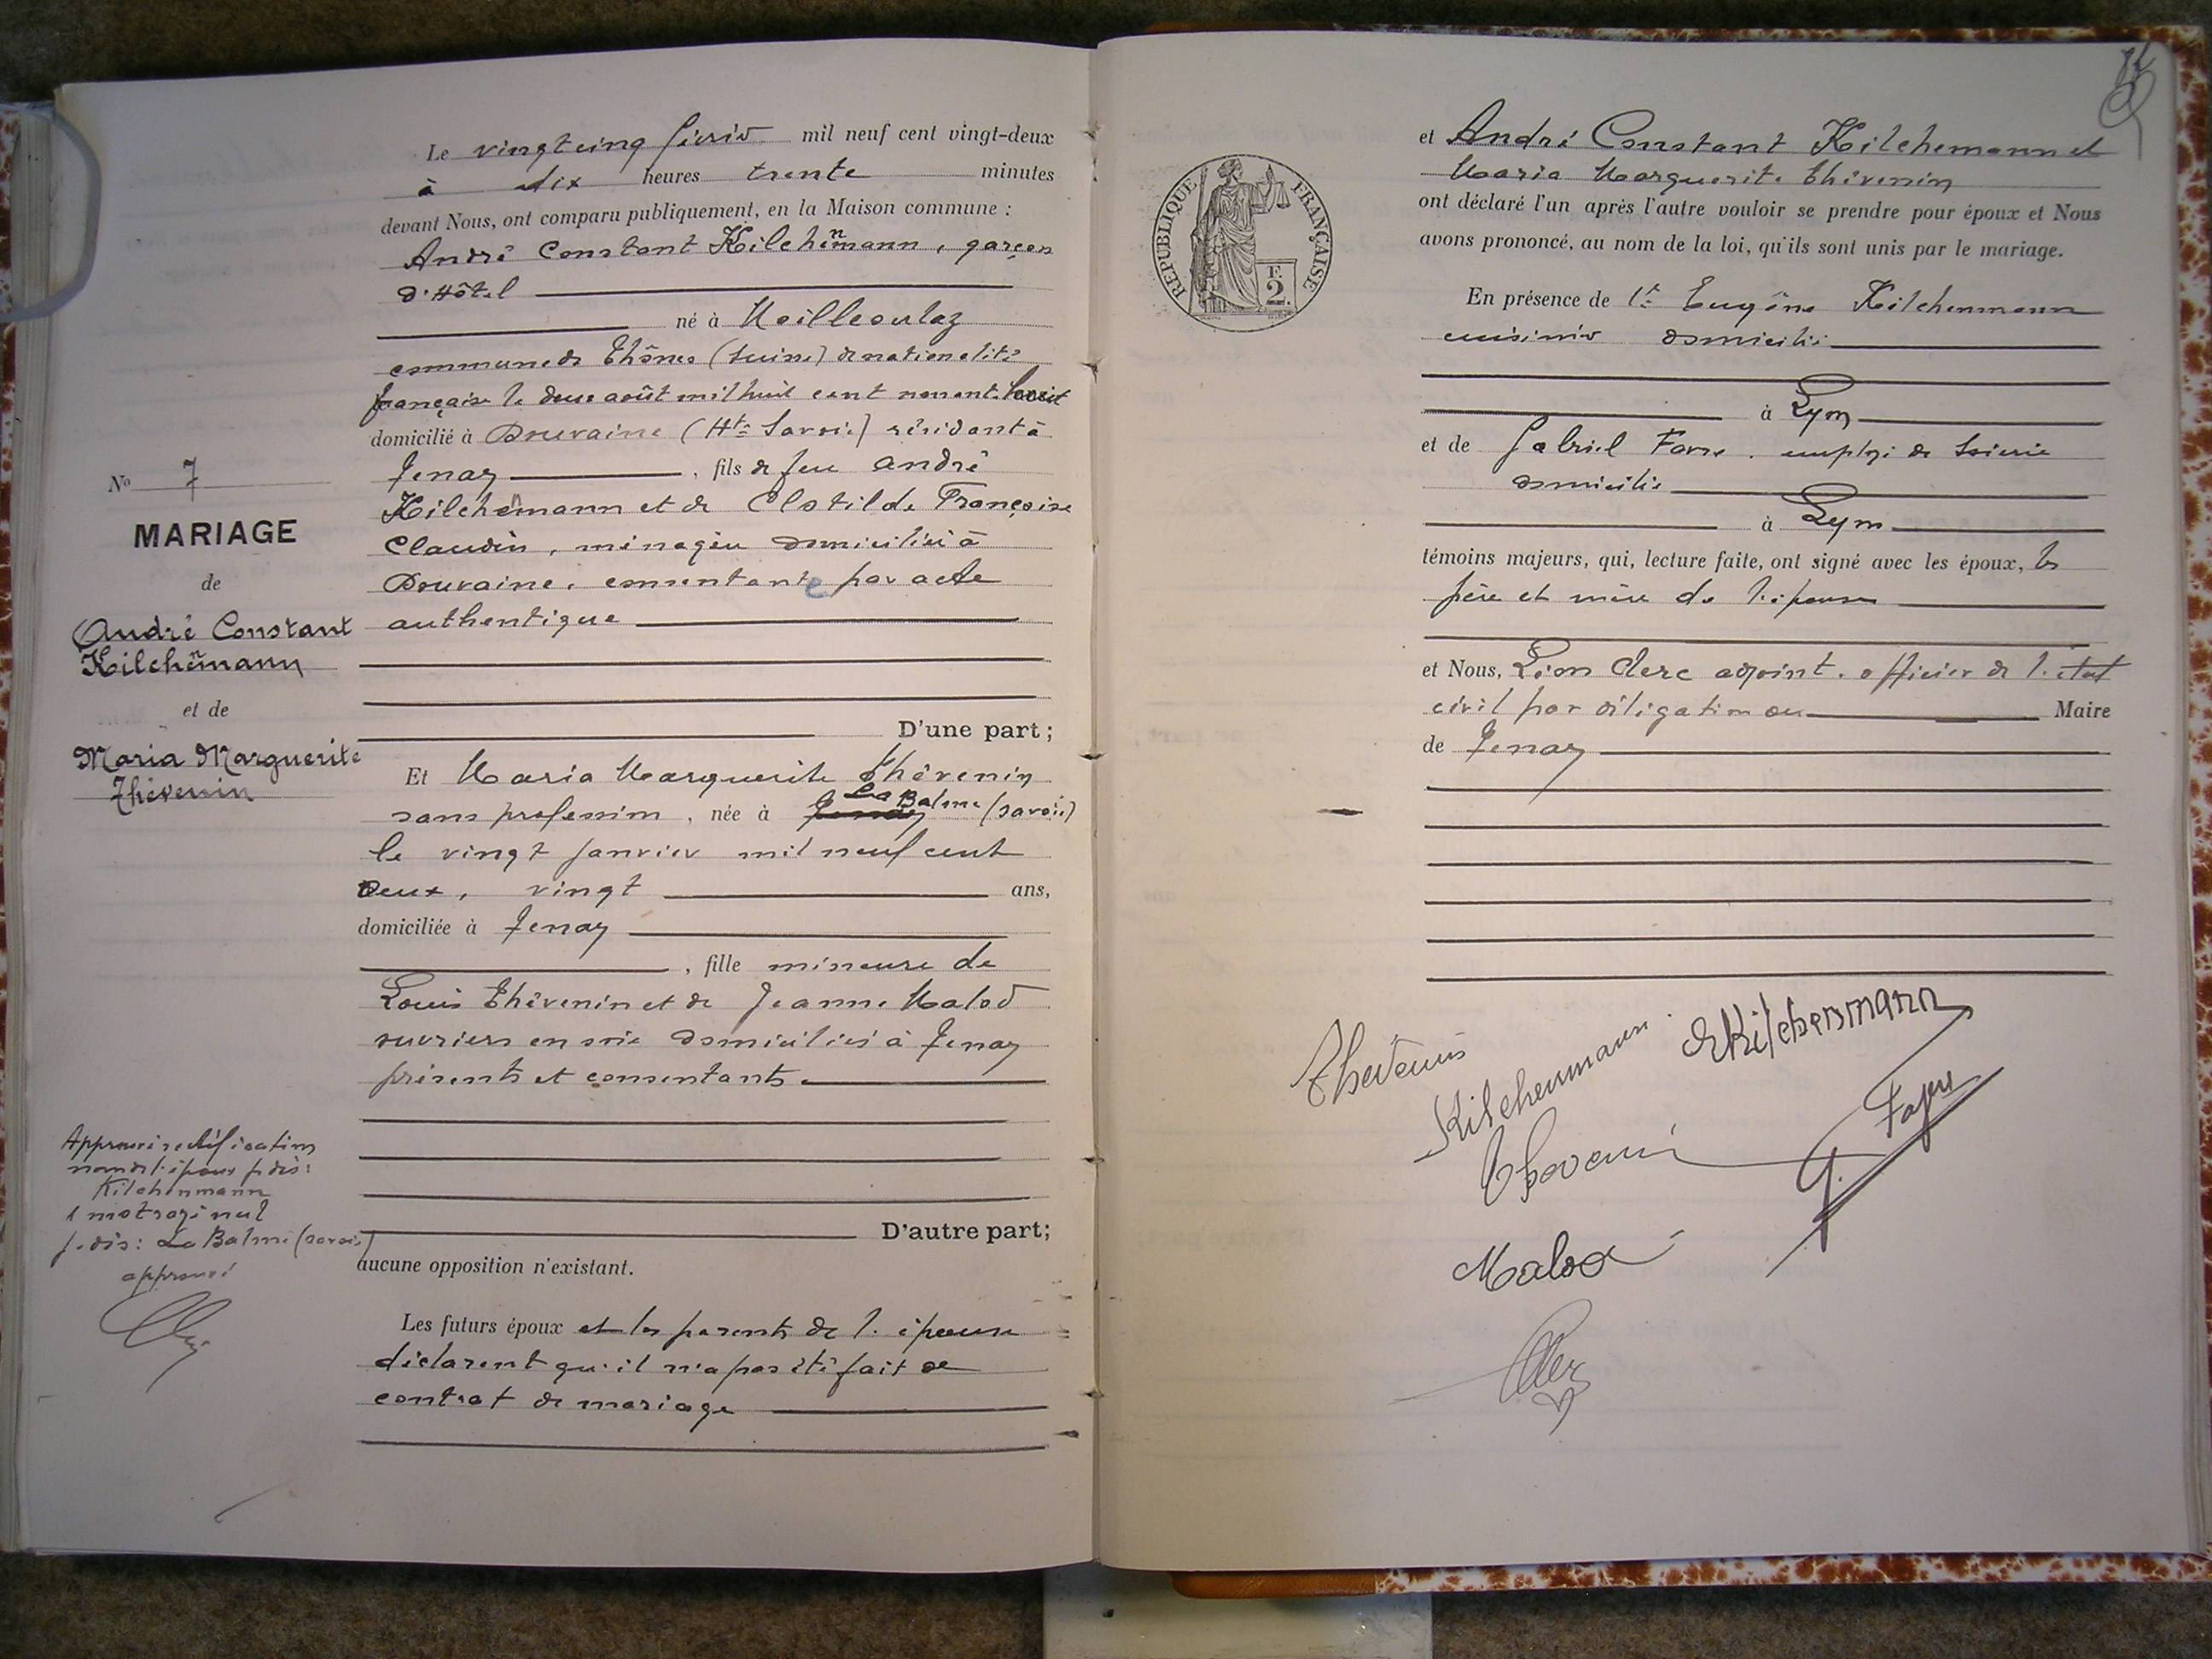 Le vingt cinq février mil neuf cent vingt-deux
à dix heures trente minutes
devant Nous, ont comparu publiquement, en la Maison commune :
André Constant Kilchenmann, garçon
d'Hôtel
né à Moillesulaz
commune de Thônex (Suisse) de nationalité
française le deux août mil huit cent nonante huit
domicilié à Douvaine (Hte Savoie) résidant à
Tenay, fils de feu André
Kilchenmann et de Clotilde Françoise
Claudin, ménagère domiciliée à
Douvaine, consentante par acte
authentique
No 7
MARIAGE
de
André Constant
Kilchenmann
et de
Maria Marguerite
Thévenin
D'une part;
Et Maria Marguerite Thévenin
La Balme (Savoie)
sans profession, née à Tenay
le vingt janvier mil neuf cent
deux, vingt ans,
domiciliée à Tenay
, fille mineure de
Louis Thévenin et de Jeanne Malod
ouvriers en soie domiciliés à Tenay
présents et consentants.
Approuvé rectification
nom de l'époux ci-dès:
Kilchenmann
1 mot rayé nul
: La Balme (Savoie)
approuvé
D'autre part;
aucune opposition n'existant.
Les futurs époux et les parents de l'épouse
déclarent qu'il n'a pas été fait de
contrat de mariage
REPUBLIQUE FRANÇAISE
2 F.
et André Constant Kilchemann et
Maria Marguerite Thévenin
ont déclaré l'un après l'autre vouloir se prendre pour époux et Nous
avons prononcé, au nom de la loi, qu'ils sont unis par le mariage.
En présence de 1t Eugène Kilchenmann
cuisinier domicilié
à Lyon
et de Gabriel Favre, employé de Soierie
domicilié
à Lyon
témoins majeurs, qui, lecture faite, ont signé avec les époux, les
père et mère de l'épouse
et Nous, Léon Clerc adjoint, officier de l'état
civil par délégation du Maire
de Tenay
Thévenin
Kilchenmann
E Kilchenmann
Thevenin
G. Favre
Malod